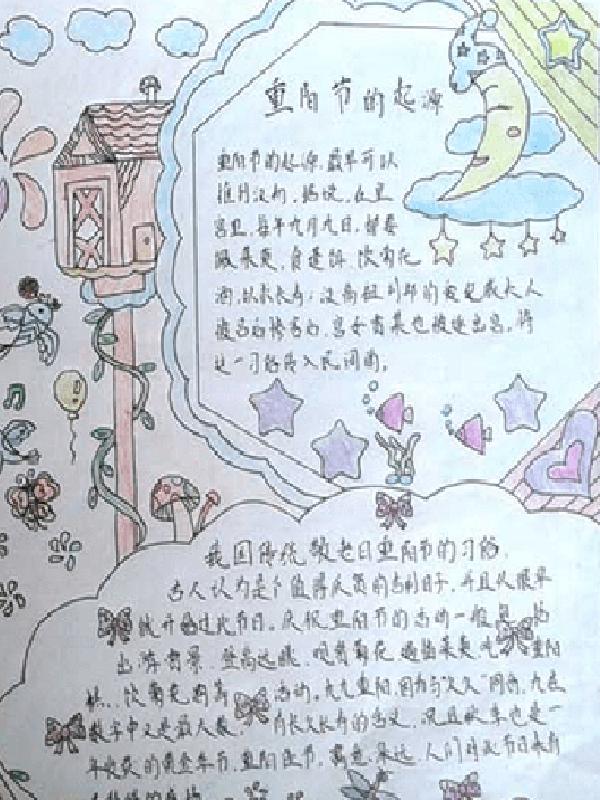 重阳节的起源
重阳节的起源，最早可以
推到汉初，据说，在皇
宫里，每年九月九日，都要
佩茱萸，食蓬饵，饮菊花
酒，以求长寿；汉高祖刘邦的爱妃戚夫人
被吕后惨害后，宫女贾某也被逐出宫，将
这一习俗传入民间。
我国传统敬老日重阳节的习俗。
古人认为是个值得庆贺的吉利日子，并且从很早
就开始过此节日。庆祝重阳节的活动一般包括
出游赏景、登高远眺、观赏菊花、遍插茱萸、吃重阳
糕、饮菊花酒等活动。九九重阳，因为与"久久"同音，九在
数字中又是最大数，有长久长寿的含义，况且秋季也是一
年收获的黄金季节，重阳佳节，寓意深远，人们对此节日历来有